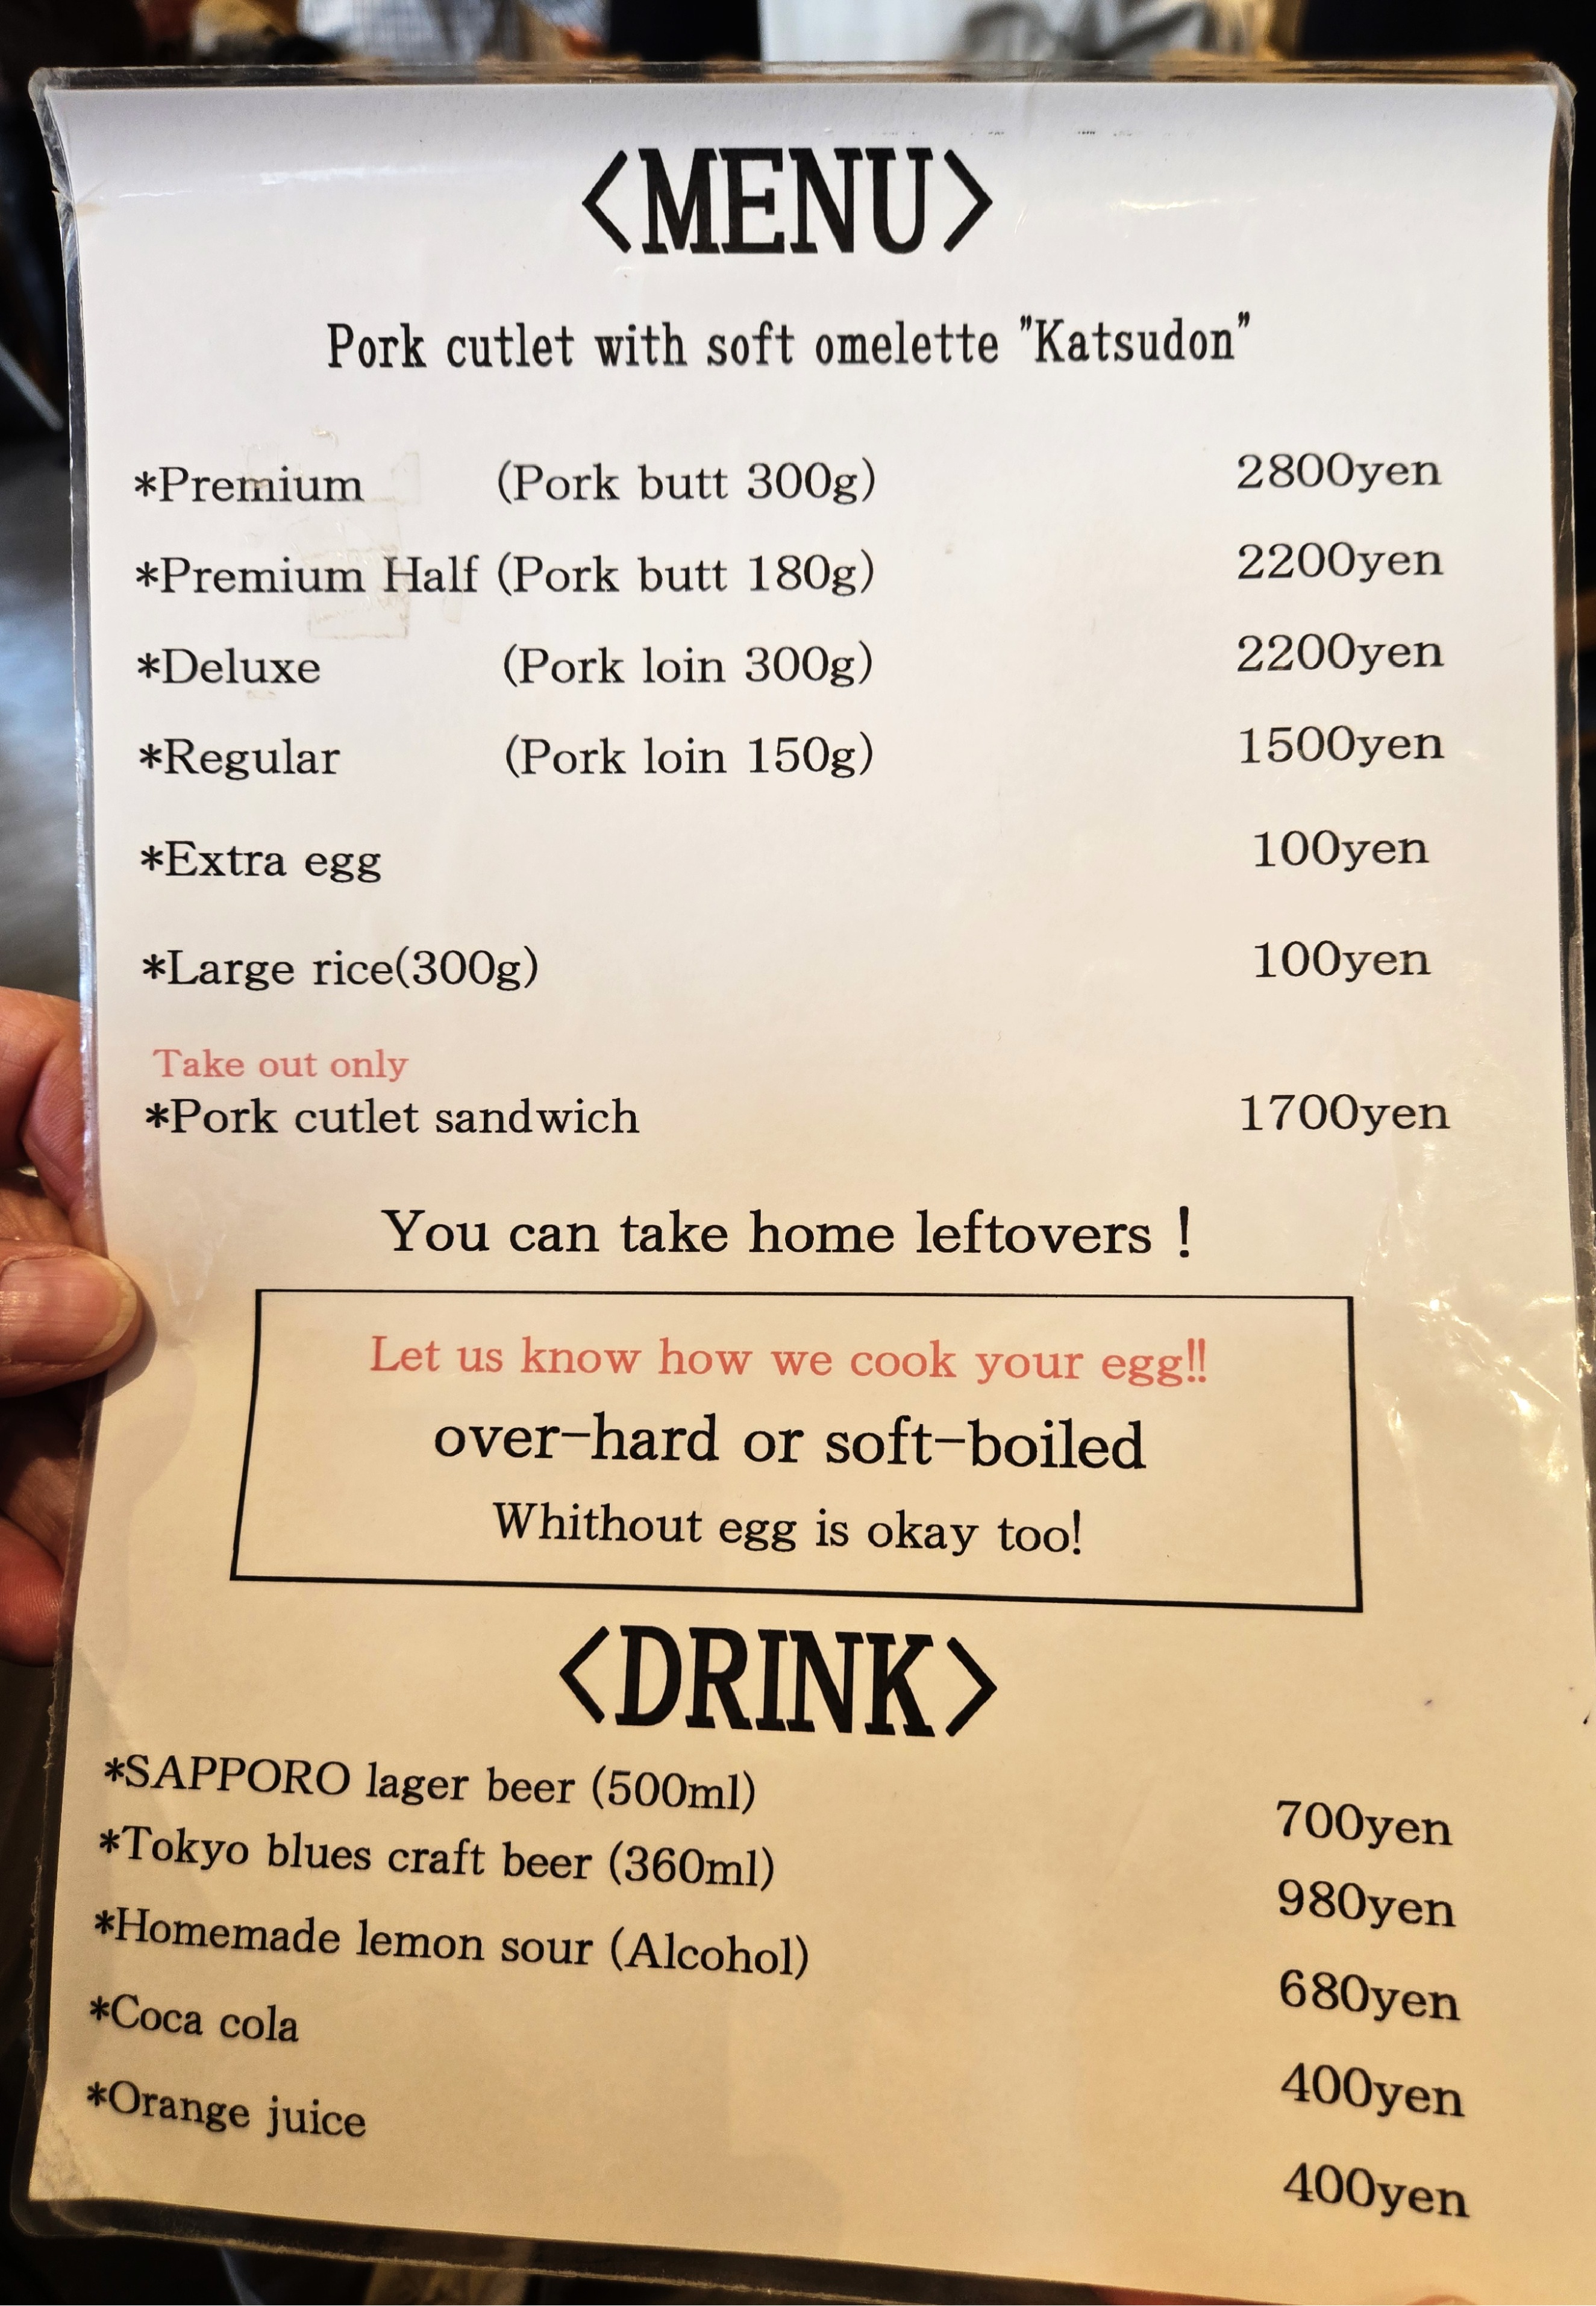 <MENU>
Pork cutlet with soft omelette "Katsudon"
*Premium (Pork butt 300g) 2800yen
*Premium Half (Pork butt 180g) 2200yen
*Deluxe (Pork loin 300g) 2200yen
*Regular (Pork loin 150g) 1500yen
*Extra egg 100yen
*Large rice(300g) 100yen
Take out only
*Pork cutlet sandwich 1700yen
You can take home leftovers !
Let us know how we cook your egg!!
over-hard or soft-boiled
Whithout egg is okay too!
<DRINK>
*SAPPORO lager beer (500ml) 700yen
*Tokyo blues craft beer (360ml) 980yen
*Homemade lemon sour (Alcohol) 680yen
*Coca cola 400yen
*Orange juice 400yen